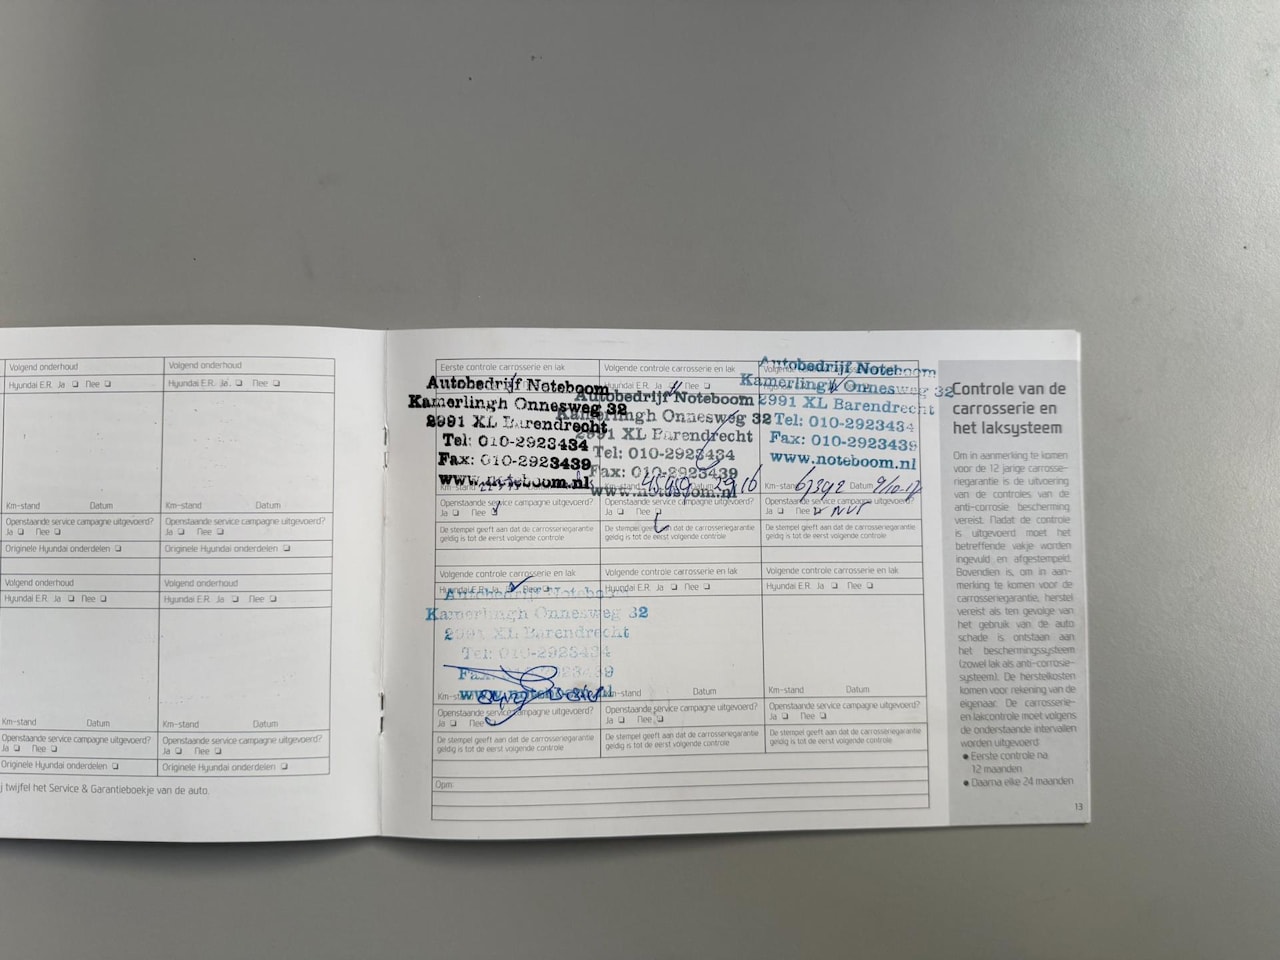 Volgend onderhoud
Hyundai E.R. Ja Nee
Km-stand Datum
Openstaande service campagne uitgevoerd?
Ja Nee
Originele Hyundai onderdelen
Volgend onderhoud
Hyundai E.R. Ja Nee
Km-stand Datum
Openstaande service campagne uitgevoerd?
Ja Nee
Originele Hyundai onderdelen
Volgend onderhoud
Hyundai E.R. Ja Nee
Km-stand Datum
Openstaande service campagne uitgevoerd?
Ja Nee
Originele Hyundai onderdelen
Volgend onderhoud
Hyundai E.R. Ja Nee
Km-stand Datum
Openstaande service campagne uitgevoerd?
Ja Nee
Originele Hyundai onderdelen
j twijfel het Service & Garantieboekje van de auto.
Eerste controle carrosserie en lak
Autobedrijf Noteboom
Kamerlingh Onnesweg 32
2991 XL Barendrecht
Tel: 010-2923434
Fax: 010-2923439
www.noteboom.nl
Openstaande service campagne uitgevoerd?
Ja Nee
De stempel geeft aan dat de carrosseriegarantie
geldig is tot de eerst volgende controle
Volgende controle carrosserie en lak
Nee
Autobedrijf Noteboom
Kamerlingh Onnesweg 32
2991 XL Barendrecht
Tel: 010-2923434
Fax: 010-2923439
www.noteboom.nl
Openstaande service campagne uitgevoerd?
Ja Nee
De stempel geeft aan dat de carrosseriegarantie
geldig is tot de eerst volgende controle
Autobedrijf Noteboom
Kamerlingh Onnesweg 32
2991 XL Barendrecht
Tel: 010-2923434
Fax: 010-2923439
www.noteboom.nl
Km-stand Datum
Openstaande service campagne uitgevoerd?
Ja Nee
De stempel geeft aan dat de carrosseriegarantie
geldig is tot de eerst volgende controle
Volgende controle carrosserie en lak
Hyundai E.R. Ja Nee
Autobedrijf Noteboom
Kamerlingh Onnesweg 32
2991 XL Barendrecht
Tel: 010-2923434
Fax: 010-2923439
www.noteboom.nl
Openstaande service campagne uitgevoerd?
Ja Nee
De stempel geeft aan dat de carrosseriegarantie
geldig is tot de eerst volgende controle
Volgende controle carrosserie en lak
Hyundai E.R. Ja Nee
Km-stand Datum
Openstaande service campagne uitgevoerd?
Ja Nee
De stempel geeft aan dat de carrosseriegarantie
geldig is tot de eerst volgende controle
Volgende controle carrosserie en lak
Hyundai E.R. Ja Nee
Km-stand Datum
Openstaande service campagne uitgevoerd?
Ja Nee
De stempel geeft aan dat de carrosseriegarantie
geldig is tot de eerst volgende controle
Opm:
Controle van de
carrosserie en
het laksysteem
Om in aanmerking te komen
voor de 12 jarige carrosse-
riegarantie is de uitvoering
van de controles van de
anti-corrosie bescherming
vereist. Nadat de controle
is uitgevoerd moet het
betreffende vakje worden
ingevuld en afgestempeld.
Bovendien is, om in aan-
merking te komen voor de
carrosseriegarantie, herstel
vereist als ten gevolge van
het gebruik van de auto
schade is ontstaan aan
het beschermingssysteem
(zowel lak als anti-corrosie-
systeem). De herstelkosten
komen voor rekening van de
eigenaar. De carrosserie-
en lakcontrole moet volgens
de onderstaande intervallen
worden uitgevoerd:
● Eerste controle na
12 maanden
● Daarna elke 24 maanden
13